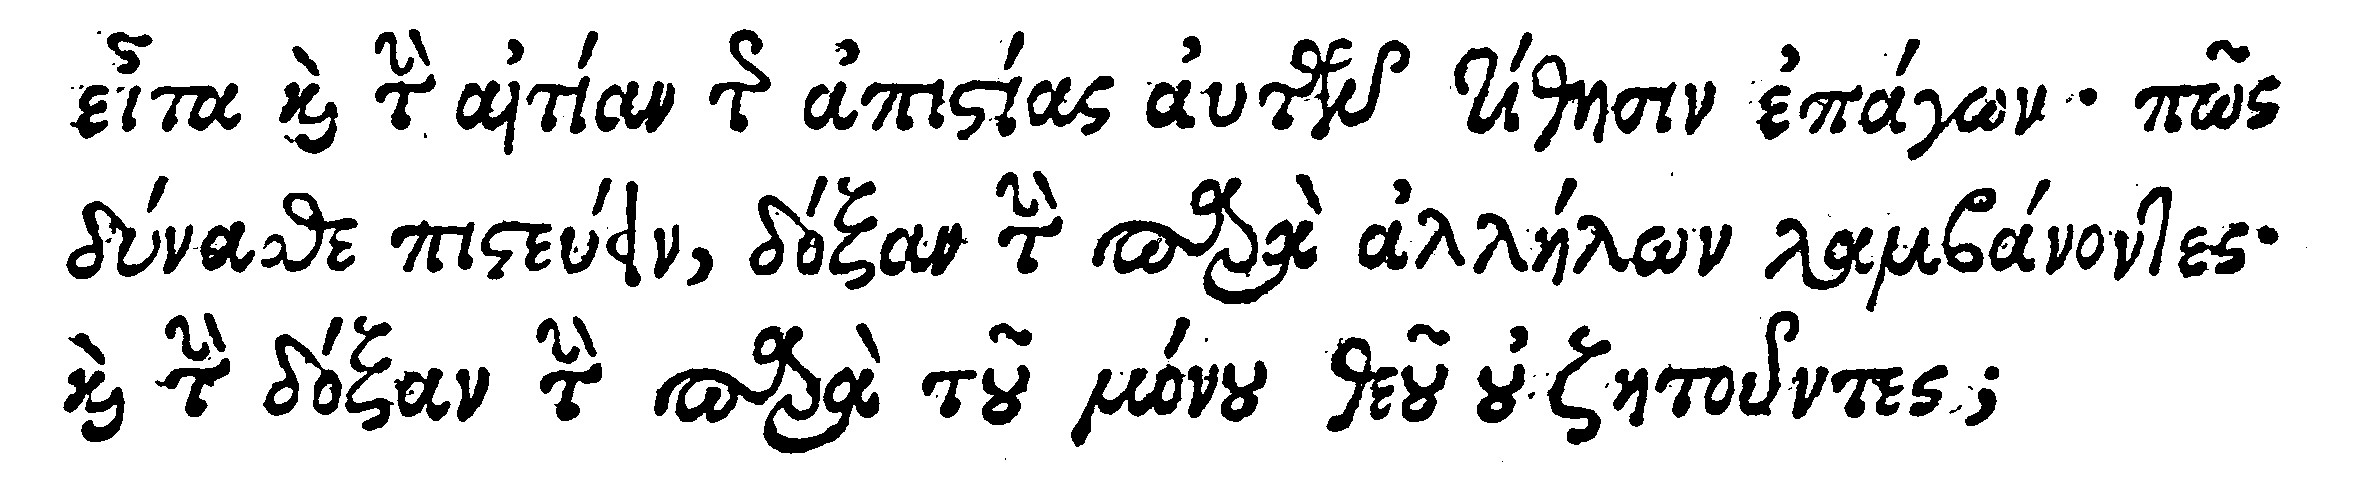 εἶτα καὶ τὴν αἰτίαν τῆς ἀπιστίας αὐτῶν τίθησιν ἐπάγων· πῶς
δύνασθε πιστεύειν, δόξαν τὴν παρὰ ἀλλήλων λαμβάνοντες·
καὶ τὴν δόξαν τὴν παρὰ τοῦ μόνου θεοῦ οὐ ζητοῦντες;